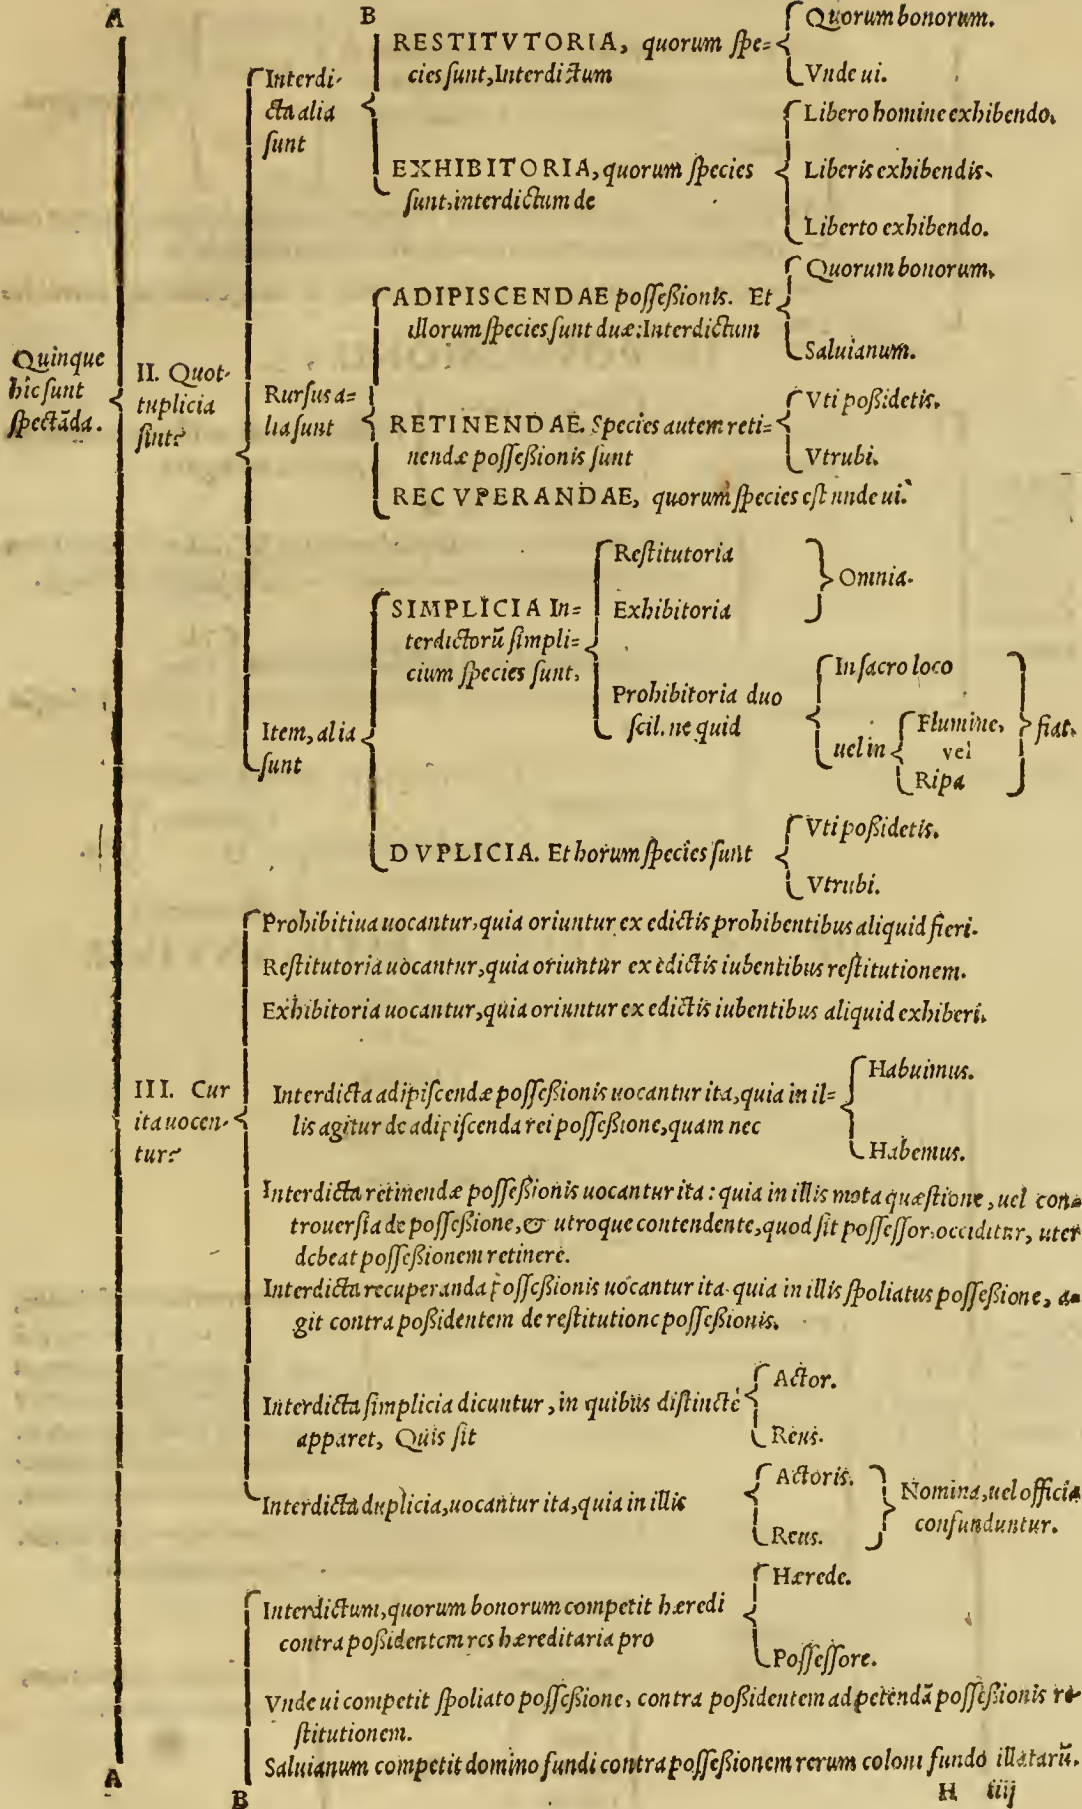 A
B
Quinque
hic sunt
spectāda.
II. Quot-
tuplicia
sint?
Interdi-
cta alia
sunt
RESTITVTORIA, quorum spe=
cies sunt, Interdictum
Quorum bonorum.
Vnde ui.
EXHIBITORIA, quorum species
sunt, interdictum de
Libero homine exhibendo.
Liberis exhibendis.
Liberto exhibendo.
Rursus a=
lia sunt
ADIPISCENDAE posseßionis. Et
illorum species sunt duæ: Interdictum
Quorum bonorum.
Saluianum.
RETINENDAE. Species autem reti=
nendæ possessionis sunt
Vti poßidetis.
Vtrubi.
RECVPERANDAE, quorum species est unde ui.
Item, alia
sunt
SIMPLICIA In=
terdictorū simpli=
cium species sunt,
Restitutoria
Exhibitoria
Omnia.
Prohibitoria duo
scil. ne quid
In sacro loco
uel in
Flumine,
vel
Ripa
fiat.
DVPLICIA. Et horum species sunt
Vti poßidetis.
Vtrubi.
III. Cur
ita uocen-
tur?
Prohibitiua uocantur, quia oriuntur ex edictis prohibentibus aliquid fieri.
Restitutoria uocantur, quia oriuntur ex edictis iubentibus restitutionem.
Exhibitoria uocantur, quia oriuntur ex edictis iubentibus aliquid exhiberi.
Interdicta adipiscendæ posseßionis uocantur ita, quia in il=
lis agitur de adipiscenda rei posseßione, quam nec
Habuimus.
Habemus.
Interdicta retinendæ posseßionis uocantur ita: quia in illis mota quæstione, uel con=
trouersia de posseßione, & utroque contendente, quod sit possessor, occiditur, uter
debeat posseßionem retinere.
Interdicta recuperanda posseßionis uocantur ita. quia in illis spoliatus posseßione, a=
git contra poßidentem de restitutione posseßionis.
Interdicta simplicia dicuntur, in quibus distinctè
apparet, Quis sit
Actor.
Reus.
Interdicta duplicia, uocantur ita, quia in illis
Actoris.
Reus.
Nomina, uel officia
confunduntur.
Interdictum, quorum bonorum competit hæredi
contra poßidentem res hæreditaria pro
Hærede.
Possessore.
Vnde ui competit spoliato posseßione, contra poßidentem ad petendā posseßionis re-
stitutionem.
Saluianum competit domino fundi contra posseßionem rerum coloni fundo illatarū.
A
B
H iiij